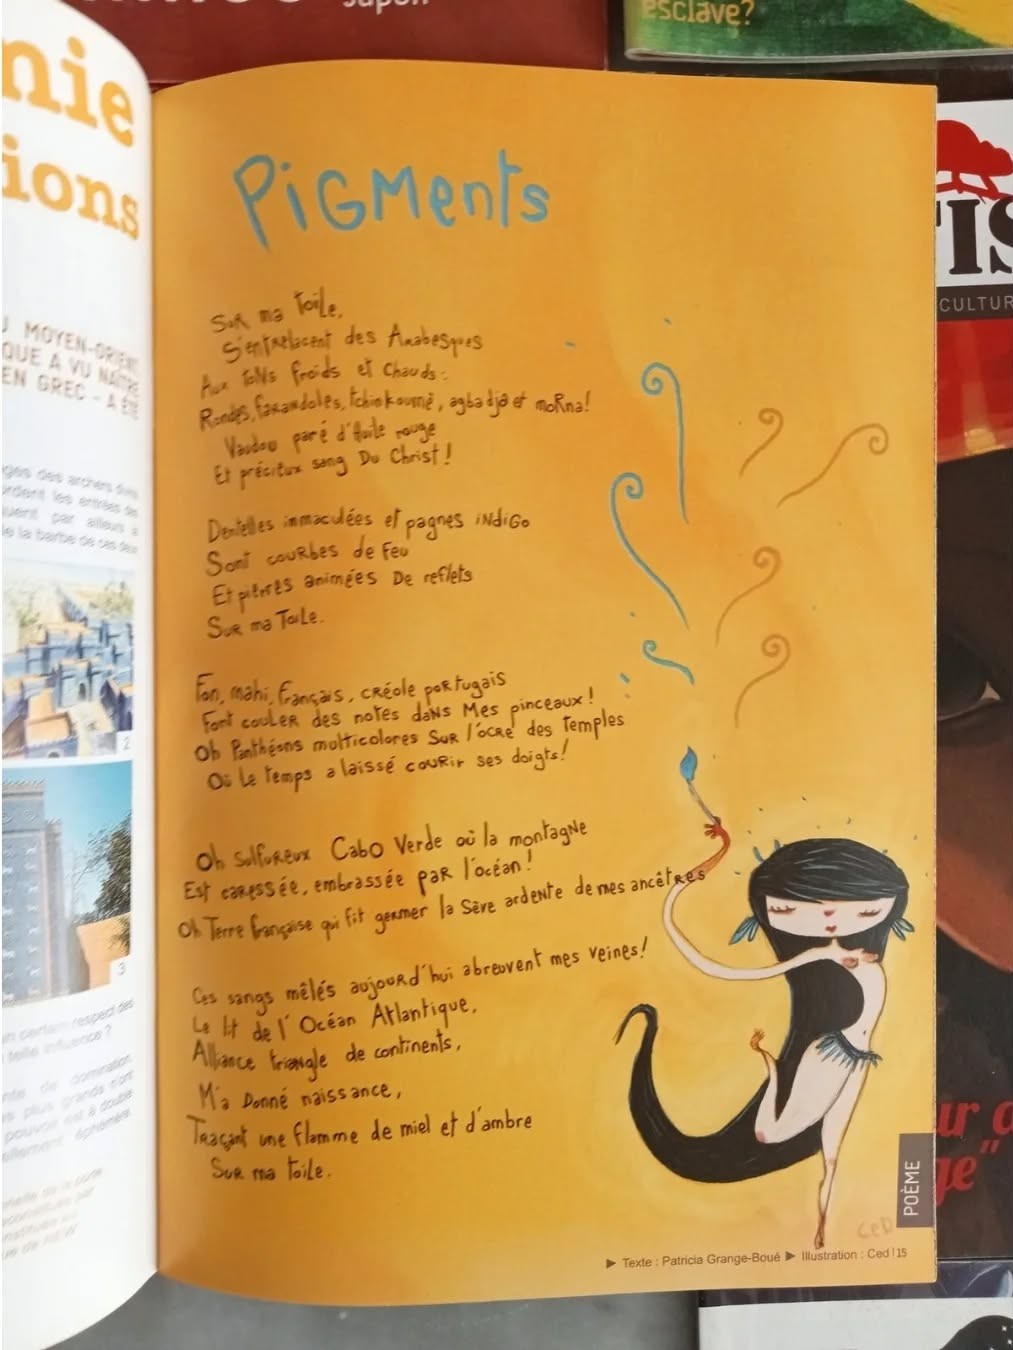 Japon
esclave?
nie
ions
MOYEN-ORIENT
QUE A VU NAÎTRE
EN GREC - A ÉTÉ
ges des archers
ordent les entrées des
uent par ailleurs à
e la barbe de ces deux
2
3
n certain respect des
telle influence ?
nte de domination
es plus grands n'ont
pouvoir est à double
PiGMents
Sur ma Toile,
S'entrelacent des Arabesques
Aux toNs froids et Chauds :
Rondes, farandoles, tchinkoumè, agbadja et moRna!
Vaudou paré d'Huile rouge
Et précieux sang Du Christ !
Dentelles immaculées et pagnes iNdiGo
Sont couRbes de Feu
Et pierres animées De reflets
Sur ma Toile.
Fon, mahi, français, créole poRtugais
Font couleR des notes daNs Mes pinceaux !
Oh Panthéons multicolores SuR l'ocre des temples
Où Le Temps a laissé couRir ses doigts!
Oh SulfuReux Cabo Verde où la montagNe
Est caressée, embrassée paR l'océan !
Oh Terre française qui fit geRmer la Sève ardeNte de mes ancêtRes
Ces sangs mêlés aujouRd'hui abreuvent mes veines!
Le lit de l'Océan Atlantique,
Alliance triaNgle de continents,
M'a Donné naissance,
Traçant une flamme de miel et d'ambre
SuR ma toile.
CeD
POÈME
▶ Texte : Patricia Grange-Boué ▶ Illustration : Ced | 15
TIS
CULTUR
ur
ge"